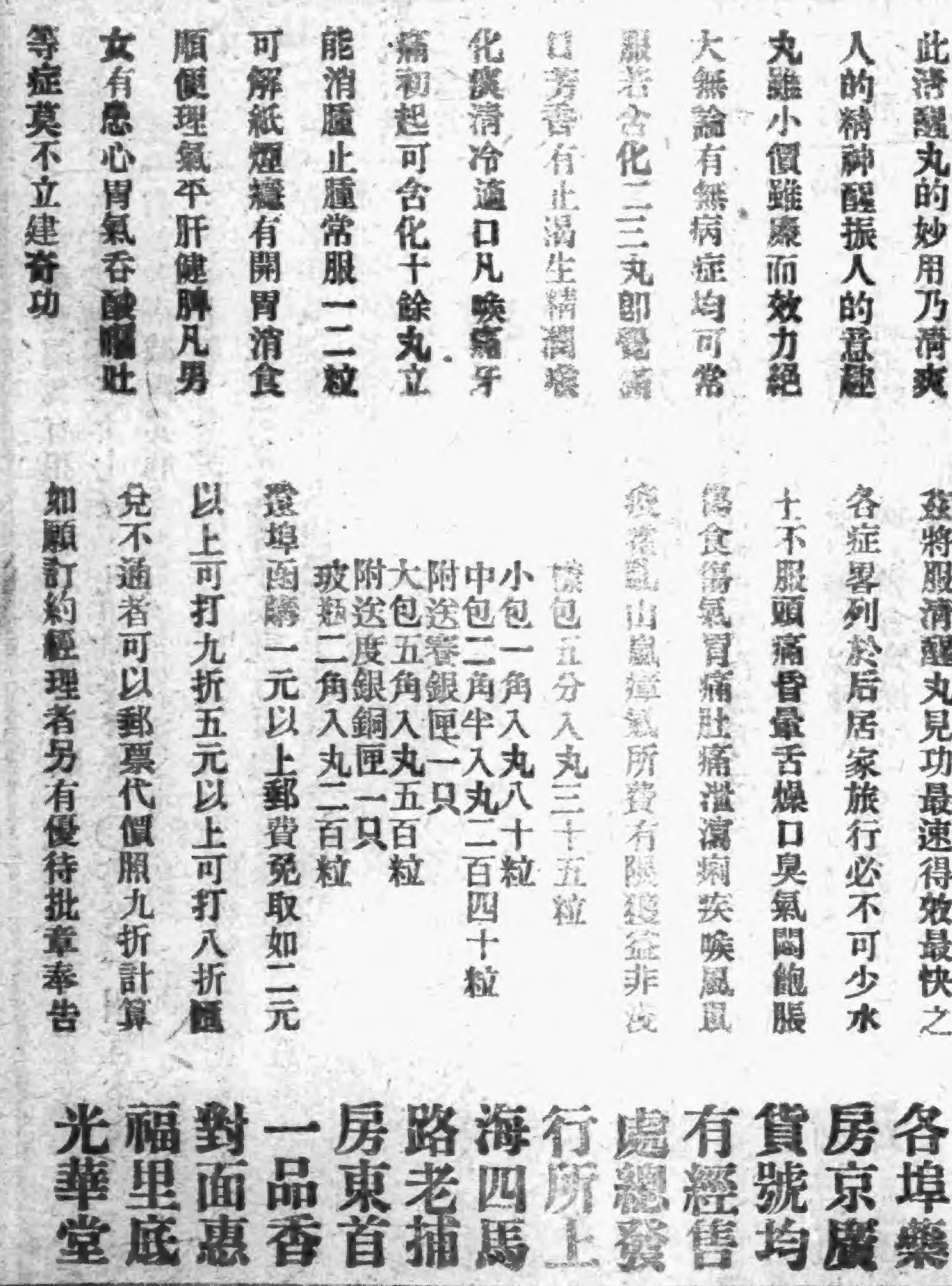 此清醒丸的妙用乃清爽
人的精神醒振人的意趣
丸雖小價雖廉而效力絕
大無論有無病症均可常
服若含化二三丸即覺滿
口芳香有止渴生精潤喉
化痰清冷適口凡喉痛牙
痛初起可含化十餘丸立
能消腫止腫常服一二粒
可解紙煙癮有開胃消食
順便理氣平肝健脾凡男
女有患心胃氣吞酸嘔吐
等症莫不立建奇功
茲將服清醒丸見功最速得效最快之
各症畧列於后居家旅行必不可少水
土不服頭痛昏暈舌燥口臭氣悶飽脹
傷食傷氣胃痛肚痛瀉痢疾喉風
亂山嵐瘴氣所費有限獲益非淺
包五分入丸三十五粒
小包一角入丸八十粒
中包二角半入丸二百四十粒
附送賽銀匣一只
大包五角入丸五百粒
附送度銀銅匣一只
玻瓶二角入丸二百粒
遠埠函購一元以上郵費免取如二元
以上可打九折五元以上可打八折匯
兌不通者可以郵票代價照九折計算
如願訂約經理者另有優待批章奉告
各埠藥
房京廣
貨號均
有經售
處總發
行所上
海四馬
路老捕
房東首
一品香
對面惠
福里底
光華堂